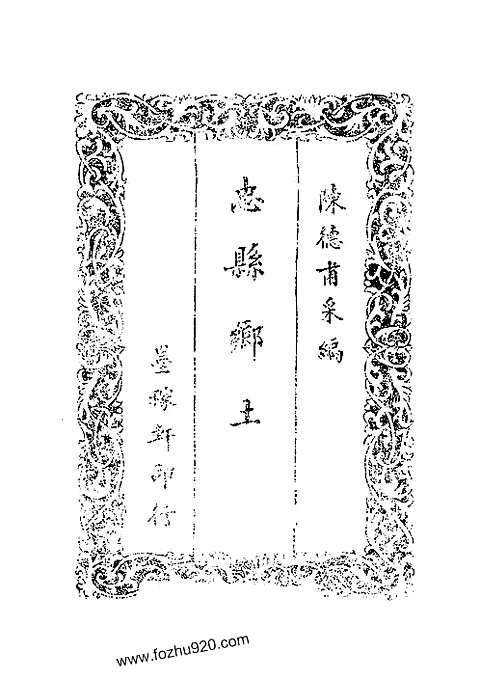 陳德甫采編
忠縣鄉土
墨稼軒印行
www.fozhu920.com